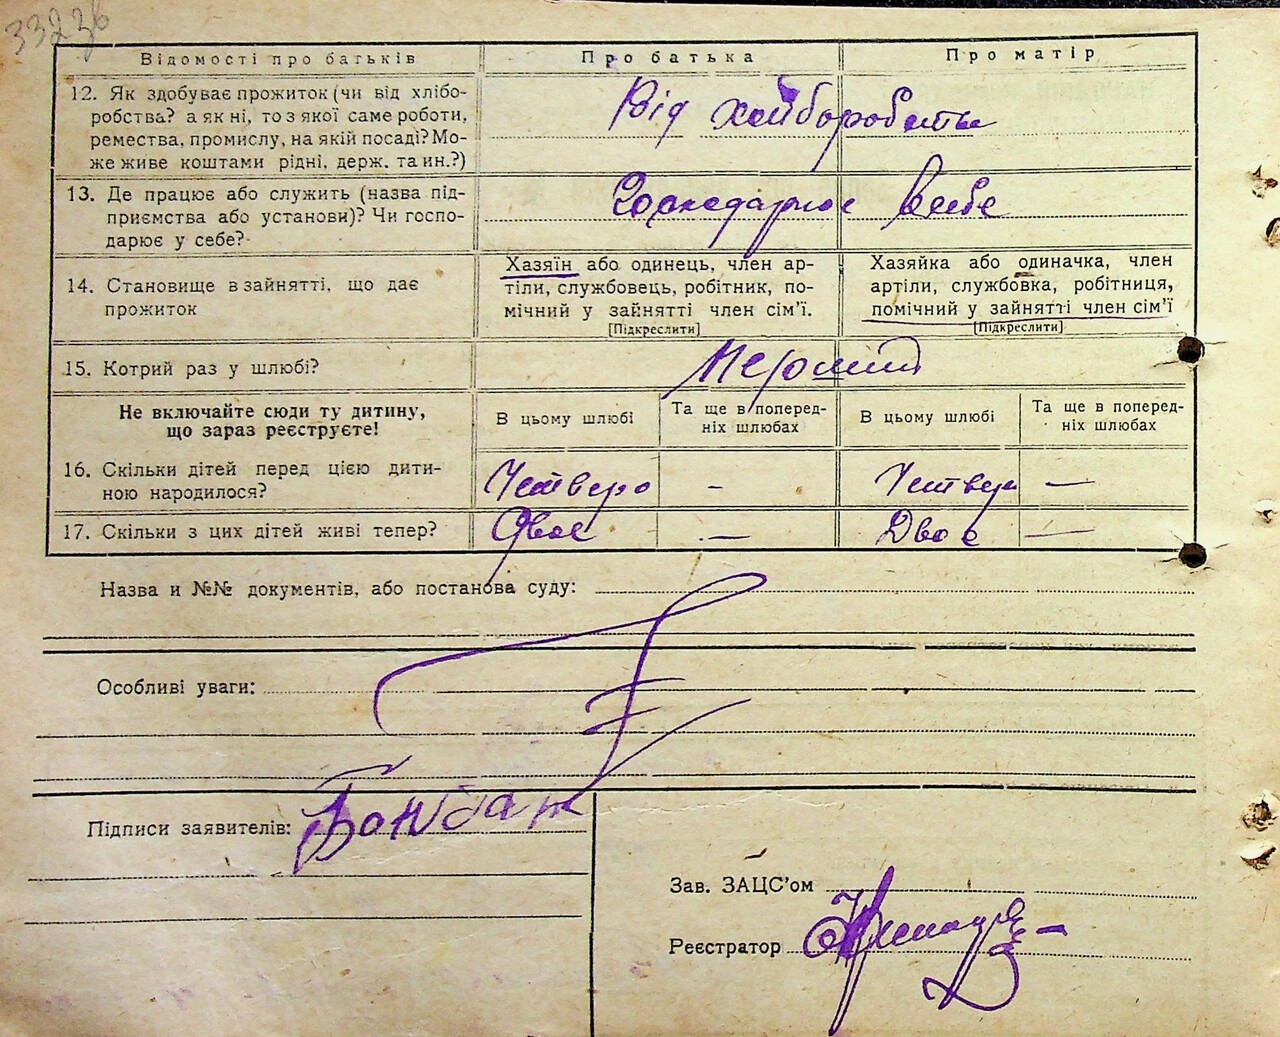 33236
Відомості про батьків Про батька Про матір
12. Як здобуває прожиток (чи від хлібо-
робства? а як ні, то з якої саме роботи,
ремества, промислу, на якій посаді? Мо-
же живе коштами рідні, держ. та ин.?)
Від хлібороб
13. Де працює або служить (назва під-
приємства або установи)? Чи госпо-
дарює у себе?
Господарює в себе
14. Становище в зайнятті, що дає
прожиток
Хазяїн або одинець, член ар-
тіли, службовець, робітник, по-
мічний у зайнятті член сім'ї.
[Підкреслити]
Хазяйка або одиначка, член
артіли, службовка, робітниця,
помічний у зайнятті член сім'ї
[Підкреслити]
15. Котрий раз у шлюбі?
Первий
Не включайте сюди ту дитину,
що зараз реєструєте!
В цьому шлюбі
Та ще в поперед-
ніх шлюбах
В цьому шлюбі
Та ще в поперед-
ніх шлюбах
16. Скільки дітей перед цією дити-
ною народилося?
Четверо - Четверо —
17. Скільки з цих дітей живі тепер?
Двоє — Двоє —
Назва и №№ документів, або постанова суду:
Особливі уваги:
Підписи заявителів:
Зав. ЗАЦС'ом
Реєстратор